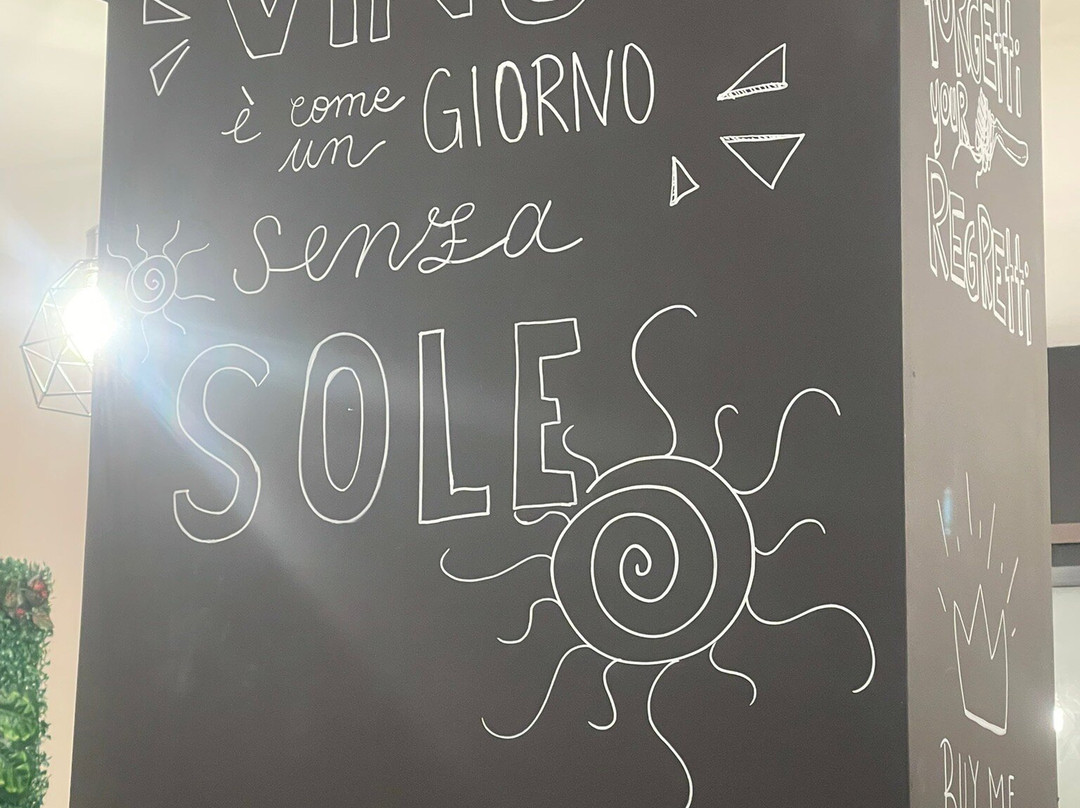 VINO
è come
un GIORNO
senza
SOLE
FORGETTI
YOUR
REGRETTI
BUY ME